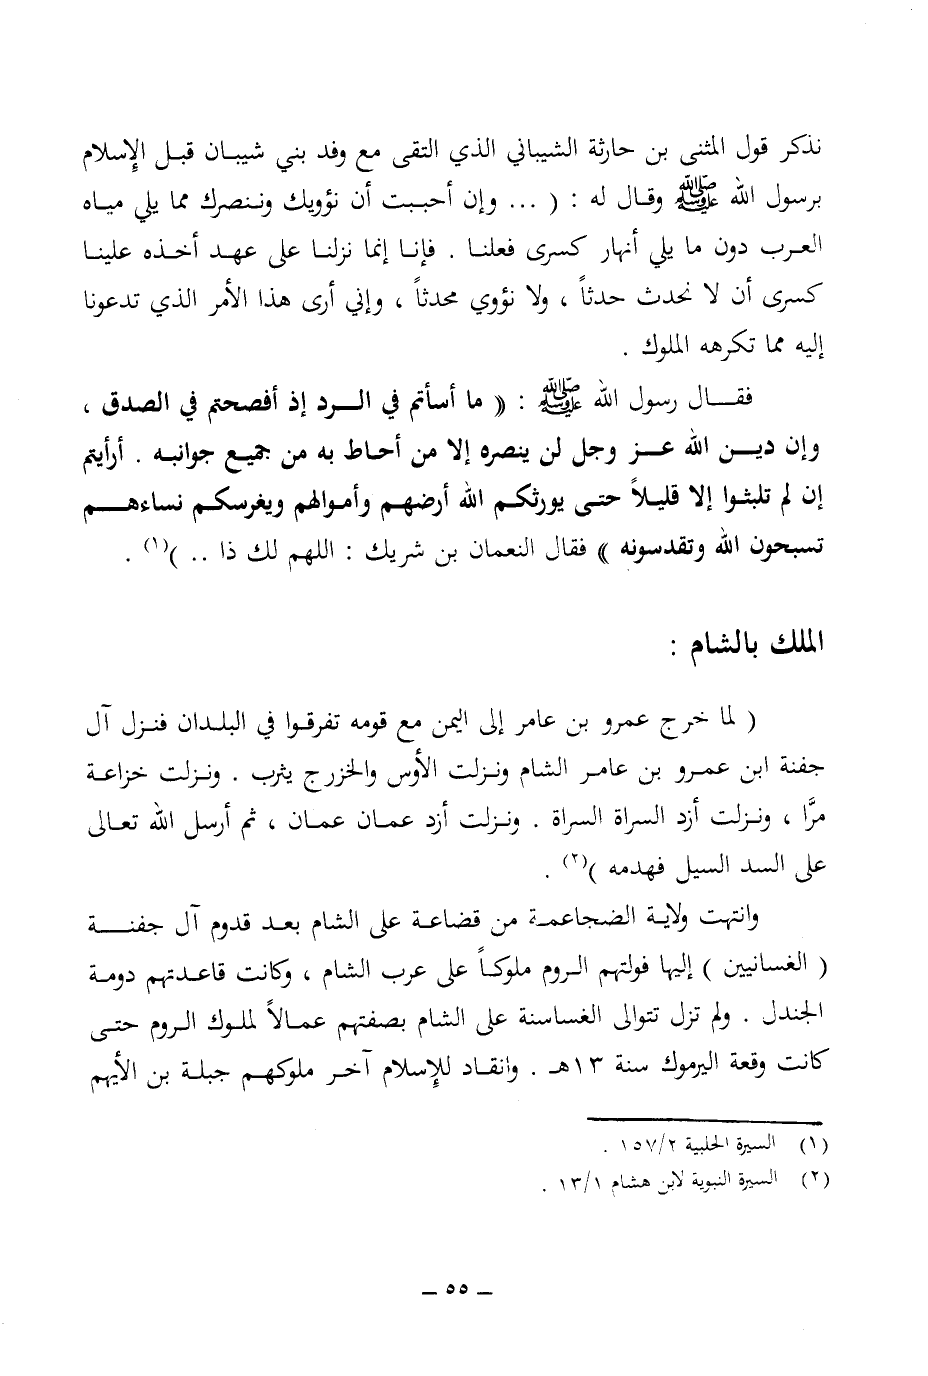 نذكر قول المثنى بن حارثة الشيباني الذي التقى مع وفد بني شيبان قبل الإسلام
برسول الله ﷺ وقال له : ( ... وإن أحببت أن نؤويك وننصرك مما يلي مياه
العرب دون ما يلي أنهار كسرى فعلنا . فإنا إنما نزلنا على عهد أخذه علينا
كسرى أن لا نحدث حدثاً ، ولا نؤوي محدثاً ، وإني أرى هذا الأمر الذي تدعونا
إليه مما تكرهه الملوك .
فقال رسول الله ﷺ : (( ما أسأتم في الرد إذ أفصحتم في الصدق ،
وإن دين الله عز وجل لن ينصره إلا من أحاط به من جميع جوانبه . أرأيتم
إن لم تلبثوا إلا قليلاً حتى يورثكم الله أرضهم وأموالهم ويغرسكم نساءهم
تسبحون الله وتقدسونه )) فقال النعمان بن شريك : اللهم لك ذا .. )(١) .
الملك بالشام :
( لما خرج عمرو بن عامر إلى اليمن مع قومه تفرقوا في البلدان فنزل آل
جفنة ابن عمرو بن عامر الشام ونزلت الأوس والخزرج يثرب . ونزلت خزاعة
مرَّا ، ونزلت أزد السراة السراة . ونزلت أزد عمان عمان ، ثم أرسل الله تعالى
على السد السيل فهدمه )(٢) .
وانتهت ولاية الضجاعمة من قضاعة على الشام بعد قدوم آل جفنة
( الغسانيين ) إليها فولتهم الروم ملوكاً على عرب الشام ، وكانت قاعدتهم دومة
الجندل . ولم تزل تتوالى الغساسنة على الشام بصفتهم عمالاً لملوك الروم حتى
كانت وقعة اليرموك سنة ١٣هـ . وانقاد للإسلام آخر ملوكهم جبلة بن الأيهم
(١) السيرة الحلبية ١٥٧/٢ .
(٢) السيرة النبوية لابن هشام ١٣/١ .
ـ ٥٥ ـ